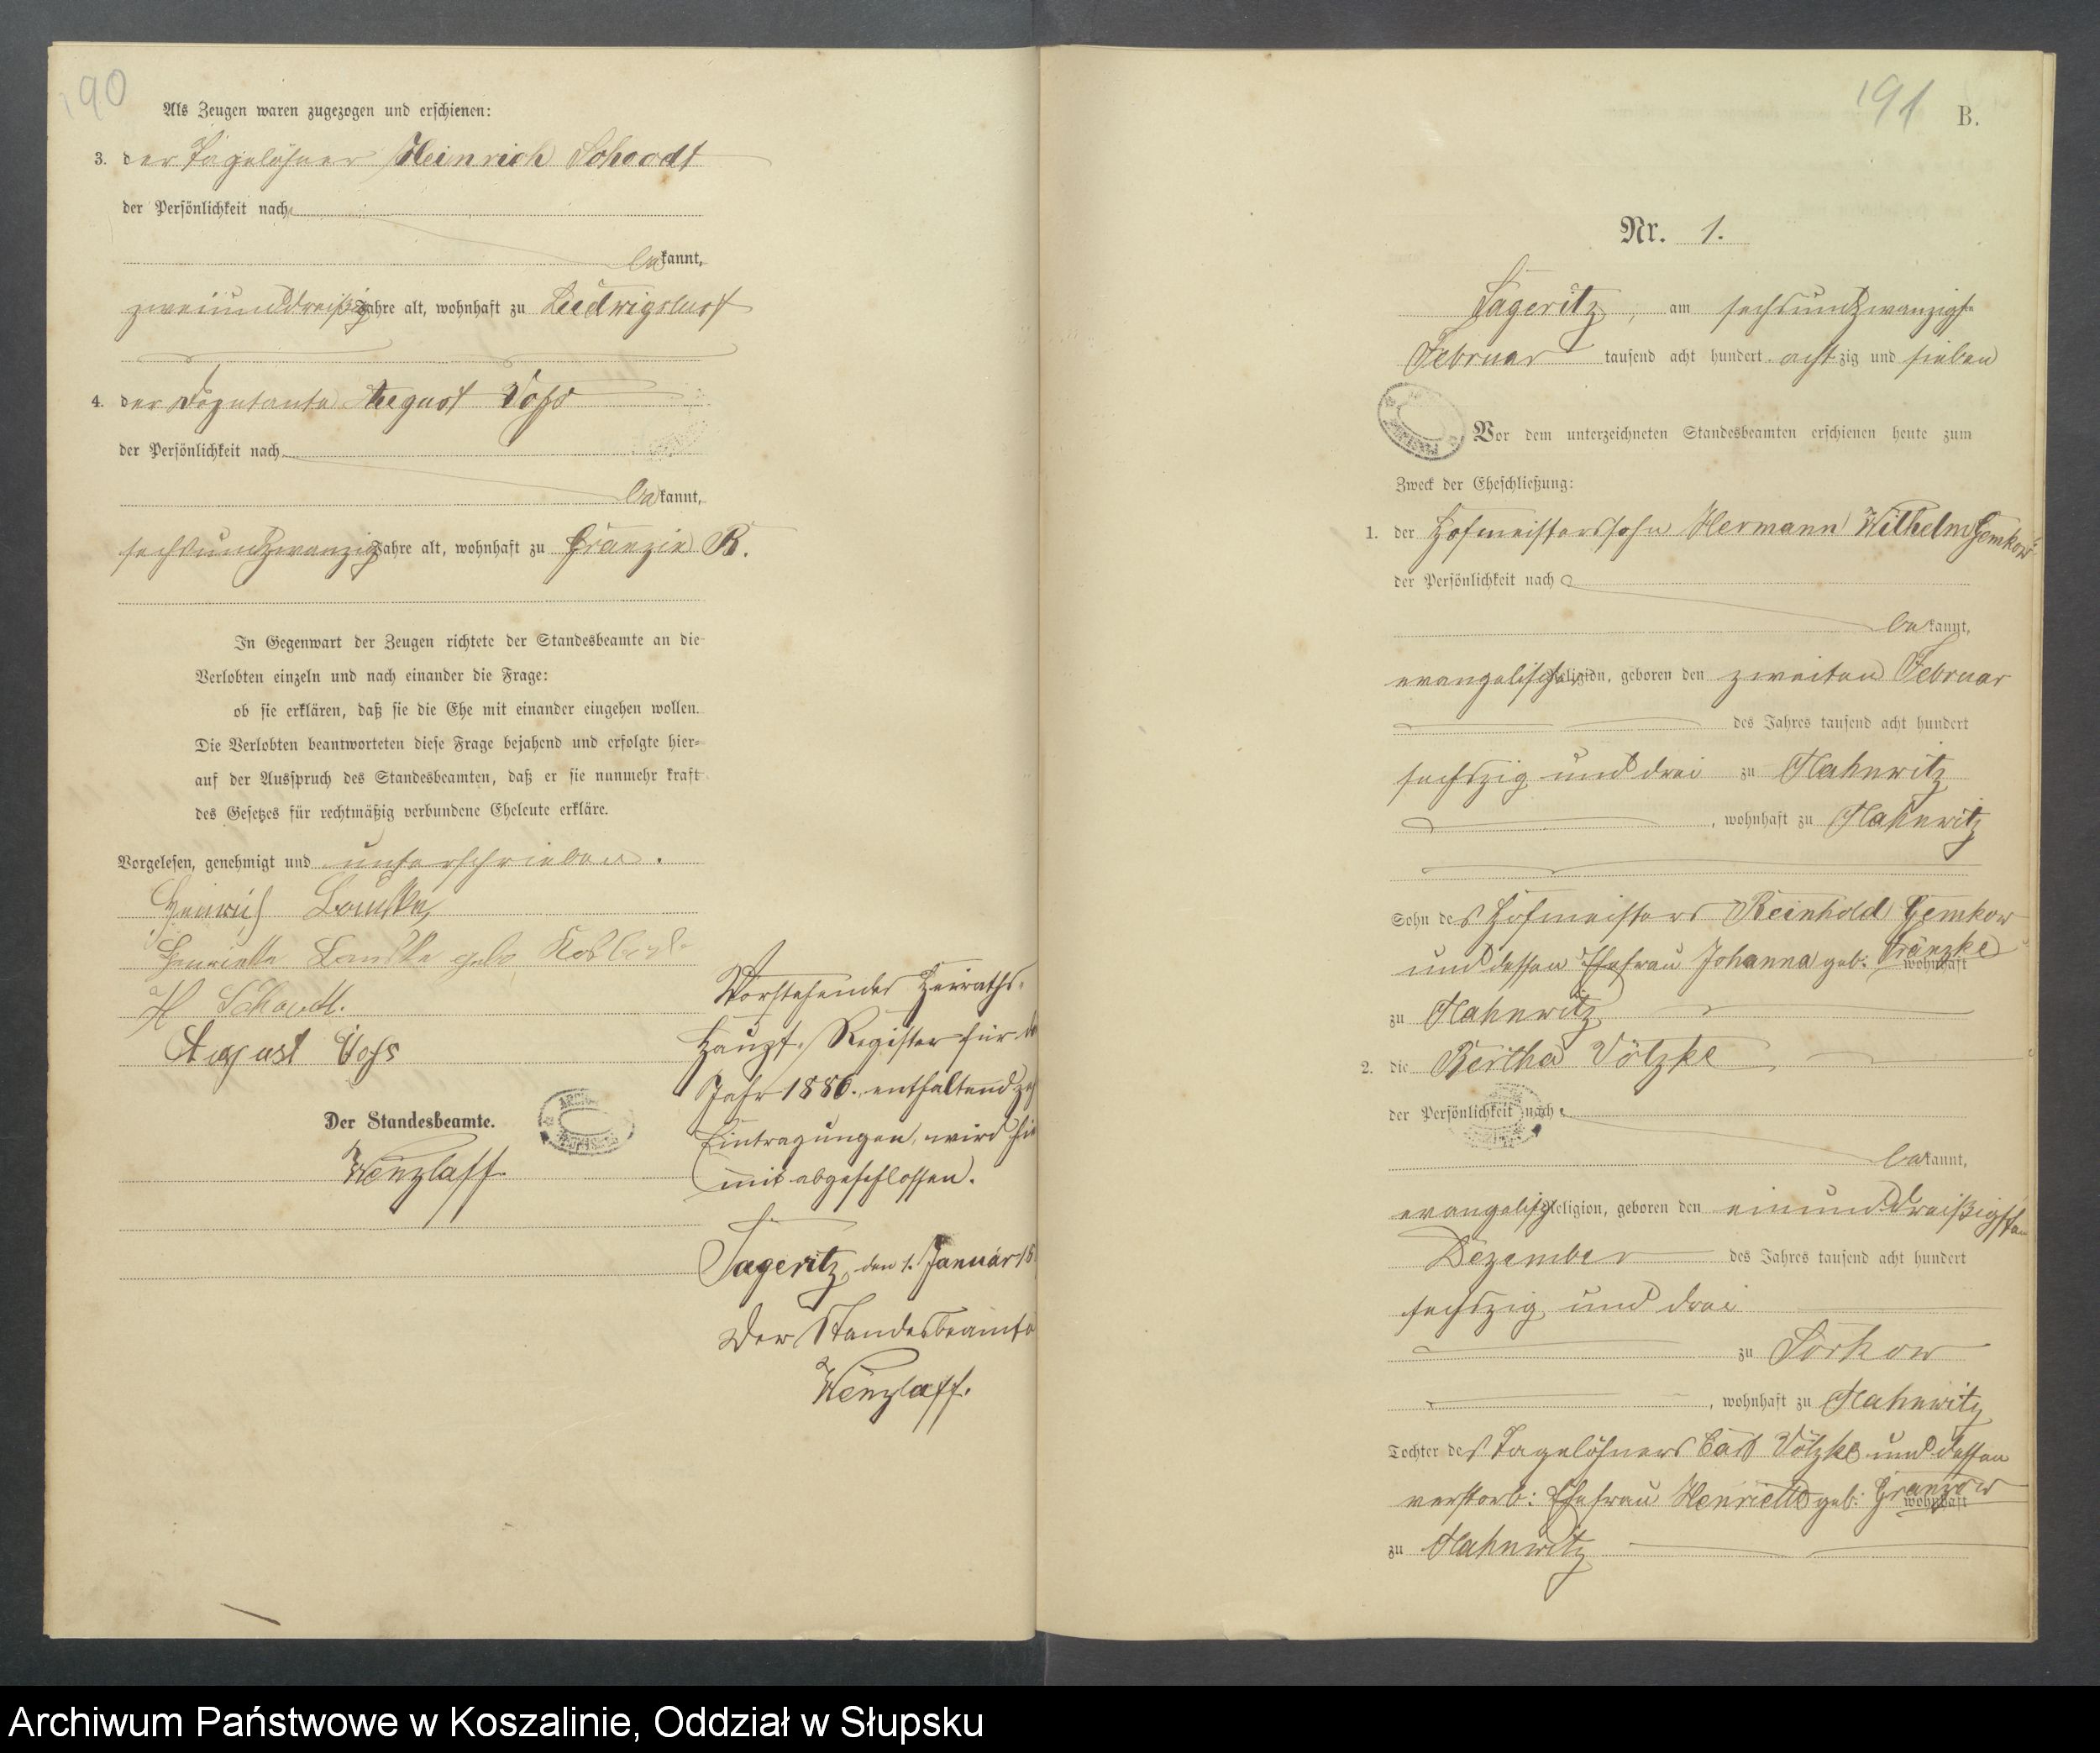 190
Als Zeugen waren zugezogen und erschienen:
3. der Tagelöhner Heinrich Schoodt
der Persönlichkeit nach
bekannt,
zweiunddreißig Jahre alt, wohnhaft zu Ludwigslust
4. der Deputante August Voss
der Persönlichkeit nach
bekannt,
sechsundzwanzig Jahre alt, wohnhaft zu Gränzin B.
In Gegenwart der Zeugen richtete der Standesbeamte an die
Verlobten einzeln und nach einander die Frage:
ob sie erklären, daß sie die Ehe mit einander eingehen wollen.
Die Verlobten beantworteten diese Frage bejahend und erfolgte hier-
auf der Ausspruch des Standesbeamten, daß er sie nunmehr kraft
des Gesetzes für rechtmäßig verbundene Eheleute erkläre.
Vorgelesen, genehmigt und unterschrieben.
Heinrich
Henriette geb
H Schoodt.
August Voss
Der Standesbeamte.
Wenzlaff
Vorstehendes Heiraths-
Haupt-Register für
Jahr 1886. enthaltend
Eintragungen, wird
mit abgeschlossen.
Sageritz, den 1. Januar 18
Der Standesbeamte
Wenzlaff.
191
B.
Nr. 1.
Sageritz, am sechsundzwanzigsten
Februar tausend acht hundert achtzig und sieben
Vor dem unterzeichneten Standesbeamten erschienen heute zum
Zweck der Eheschließung:
1. der Hofmeisterssohn Hermann Wilhelm Gemkow
der Persönlichkeit nach
bekannt,
evangelischer Religion, geboren den zweiten Februar
des Jahres tausend acht hundert
sechszig und drei zu Hahnwitz
, wohnhaft zu Hahnwitz
Sohn des Hofmeisters Reinhold Gemkow
und dessen Ehefrau Johanna geb. Fränzke
wohnhaft
zu Hahnwitz
2. die Bertha Völzke
der Persönlichkeit nach
bekannt,
evangelisch Religion, geboren den einunddreißigsten
Dezember des Jahres tausend acht hundert
sechszig und drei
zu Sorkow
, wohnhaft zu Hahnwitz
Tochter des Tagelöhners Carl Völzke und dessen
verstorb: Ehefrau Henriette geb: Granzow
wohnhaft
zu Hahnwitz
Archiwum Państwowe w Koszalinie, Oddział w Słupsku